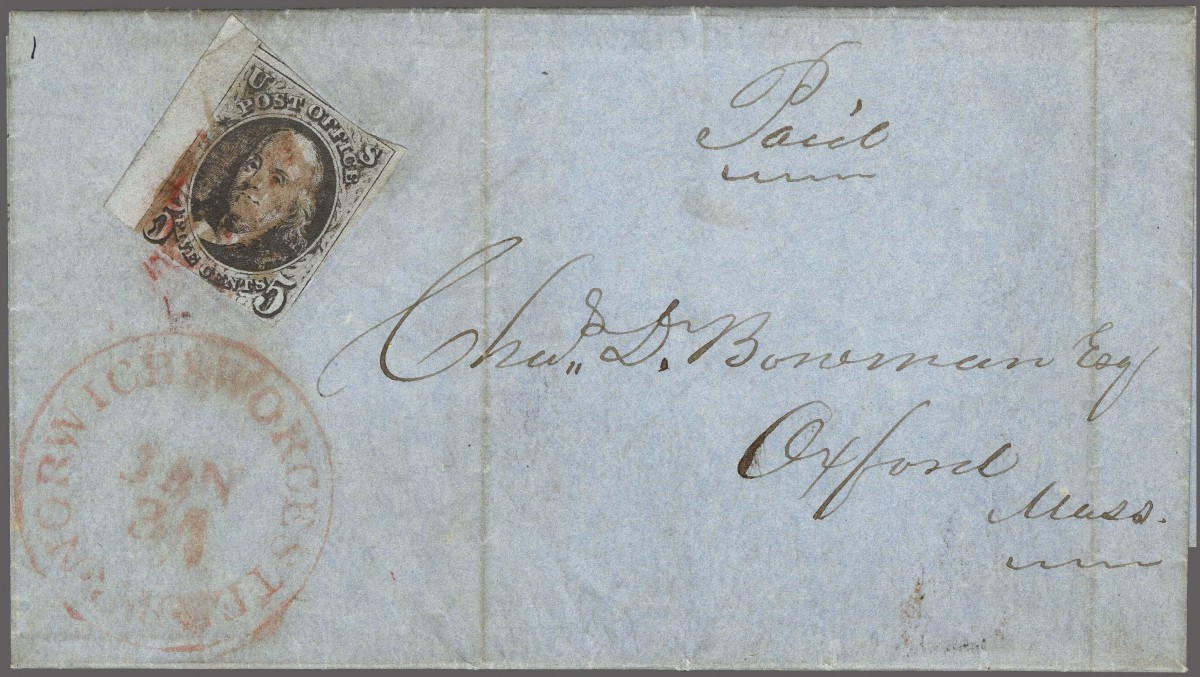 U S
POST OFFICE
5 FIVE CENTS 5
Paid
Chas. D. Bowman Esq
Oxford
Mass.
NORWICH & WORCESTER
JAN
31